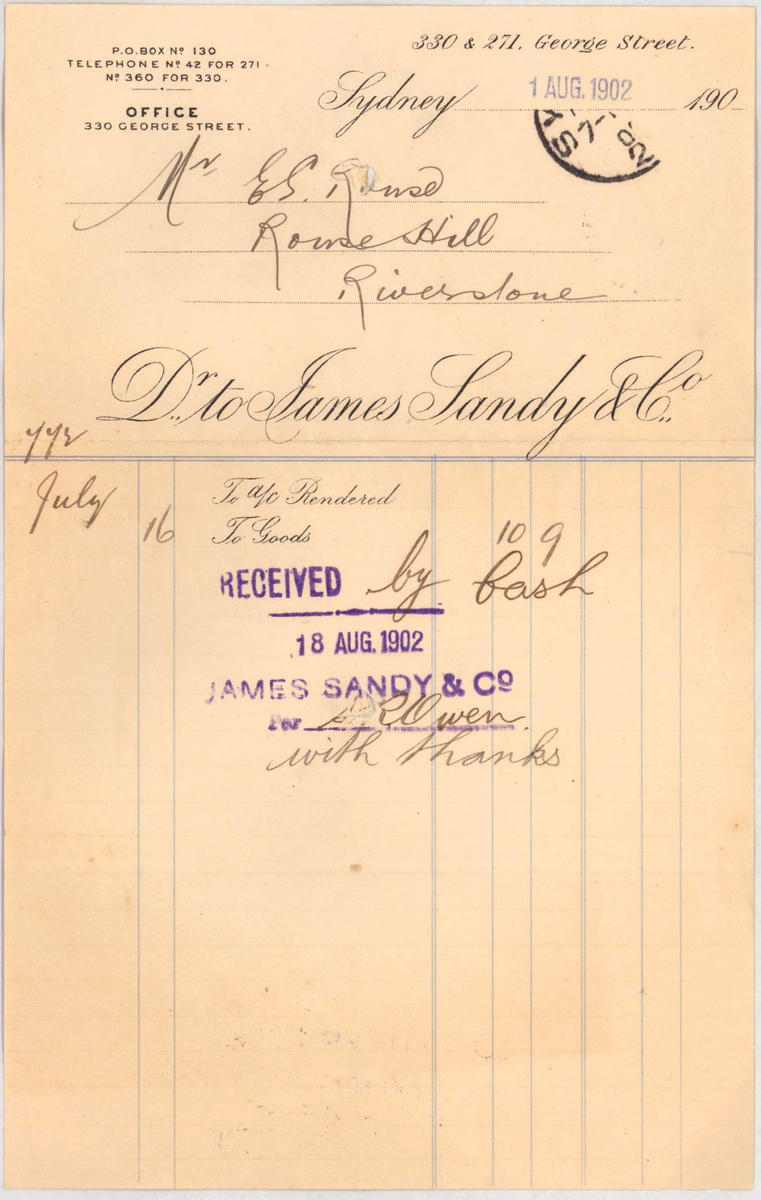 P.O. BOX Nº 130
TELEPHONE Nº 42 FOR 271.
Nº 360 FOR 330.
OFFICE
330 GEORGE STREET.
330 & 271, George Street.
Sydney 1 AUG. 1902 190
SY 7- 02
Mr E.S. Rouse
Rouse Hill
Riverstone
Dr. to James Sandy & Co.
July To a/c Rendered
16 To Goods 10 9
RECEIVED by Cash
18 AUG. 1902
JAMES SANDY & Cº
Per R Owen
with thanks